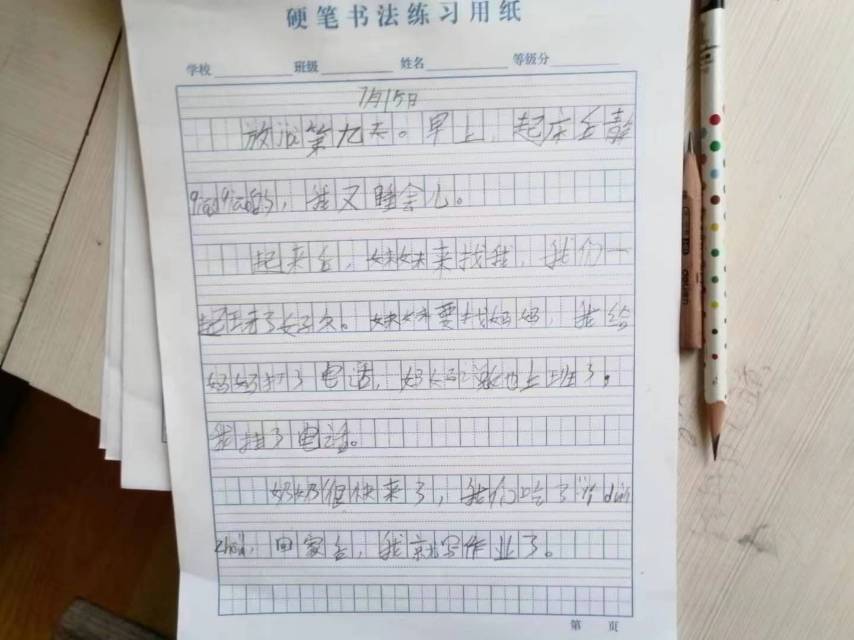 硬笔书法练习用纸
学校 班级 姓名 等级分
7月15日
放假第九天。早上,起床后静
qiāoqiāo的,我又睡会儿。
起来后,妹妹来找我,我们一
起玩了好久。妹妹要找妈妈,我给
妈妈打了电话,妈妈说她上班了。
我挂了电话。
奶奶很快来了,我们吃了
回家后,我就写作业了。
第 页